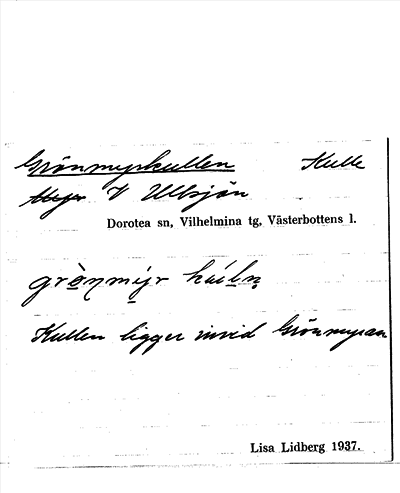 Grönmyrkullen Kulle
V Ullsjön
Dorotea sn, Vilhelmina tg, Västerbottens l.
Kullen ligger invid Grönmyran
Lisa Lidberg 1937.